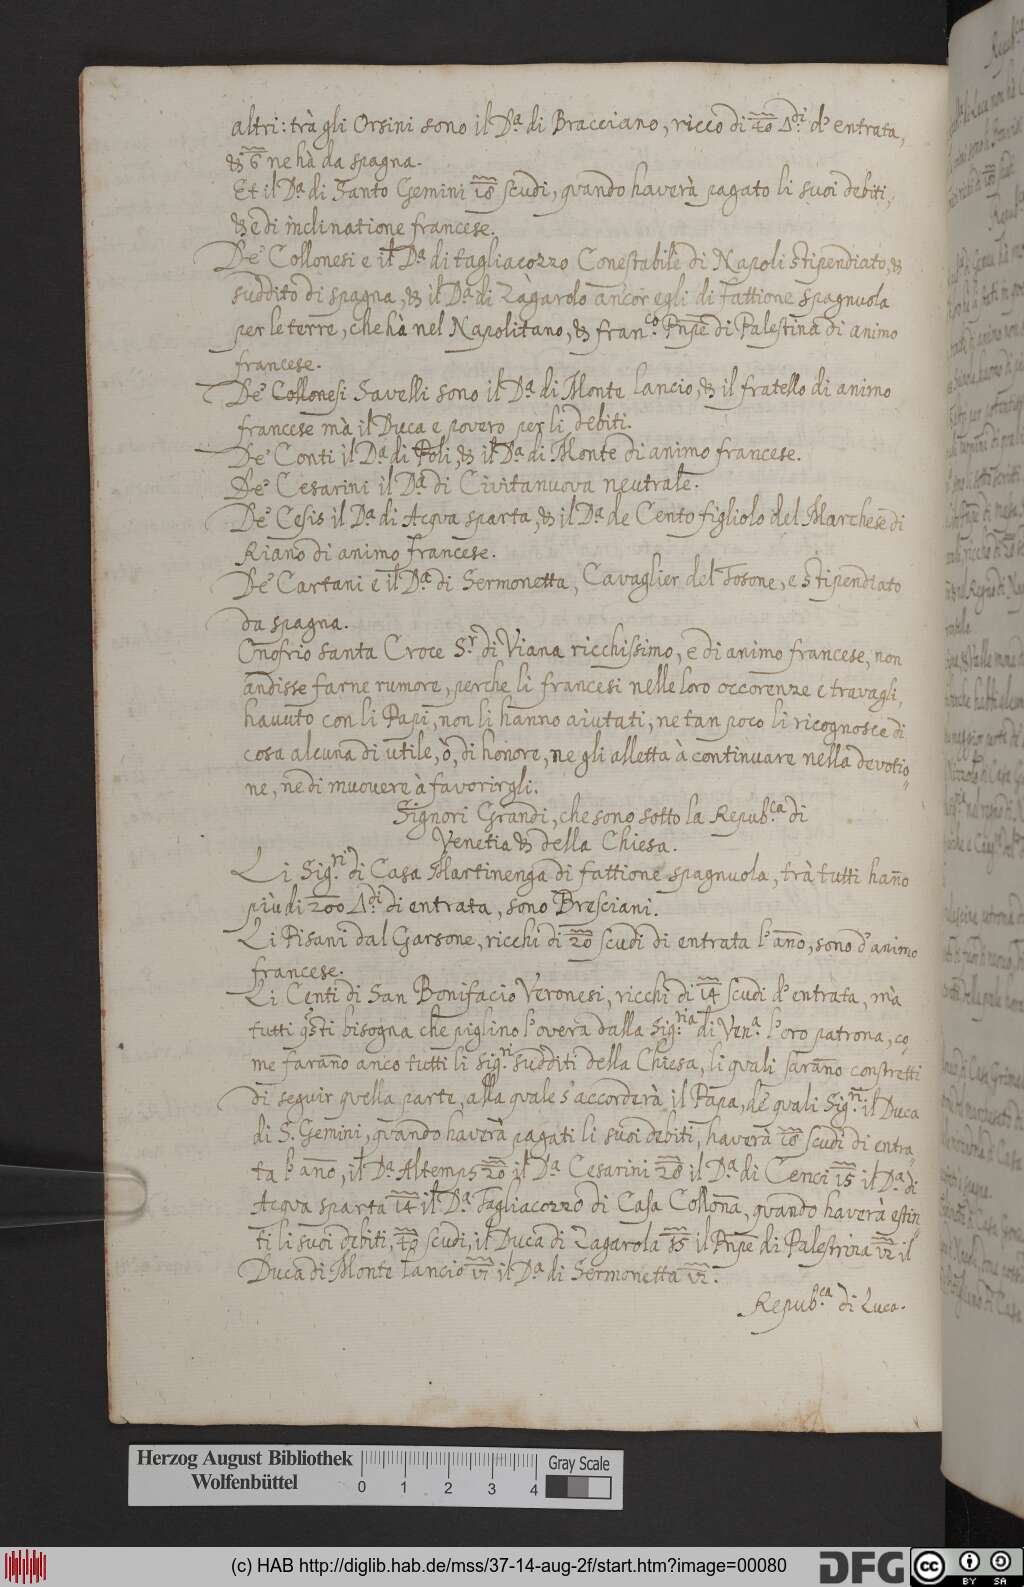 altri: trà gli Orsini sono il D.ª di Bracciano, ricco di 40 Δ.di d'entrata,
& 6 ne hà da spagna.
Et il D.ª di Santo Gemini 18 scudi, quando haverà pagato li suoi debiti,
& e di inclinatione francese.
De' Collonesi e il D.ª di tagliacozzo Conestabile di Napoli stipendiato, &
suddito di spagna, & il D.ª di Zagarolo ancor egli di fattione spagnuola
per le terre, che hà nel Napolitano, & fran.co Pnpe di Palestina di animo
francese.
De' Collonesi Savelli sono il D.ª di Monte lancio, & il fratello di animo
francese mà il Duca e povero per li debiti.
De' Conti il D.ª di Poli, & il D.ª di Monte di animo francese.
De' Cesarini il D.ª di Civitanuova neutrale.
De' Cesis il D.ª di Acqua sparta, & il D.ª de Cento figliolo del Marchese di
Riano di animo francese.
De' Cartani e il D.ª di Sermonetta, Cavaglier del Tosone, e stipendiato
da spagna.
Onofrio santa Croce S.r di Viana ricchissimo, e di animo francese, non
andisse farne rumore, perche li francesi nelle loro occorenze e travagli,
havuto con li Papi, non li hanno aiutati, ne tan poco li ricognosce di
cosa alcuna di utile, ò, di honore, ne gli alletta à continuare nella devotio=
ne, ne di muovere à favorirgli.
Signori Grandi, che sono sotto la Repub.ca di
Venetia & della Chiesa.
Li Sig.ri di Casa Martinenga di fattione spagnuola, trà tutti hañо
più di 200 Δ.di di entrata, sono Bresciani.
Li Pisani dal Garzone, ricchi di 20 scudi di entrata l'año, sono d'animo
francese.
Li Conti di San Bonifacio Veronesi, ricchi di 14 scudi d'entrata, mà
tutti qsti bisogna che piglino l'overa dalla Sig.ria di Ven.ª l'oro patrona, co,
me farano anco tutti li sig.ri sudditi della Chiesa, li quali sarano constretti
di seguir quella parte, alla quale s'accorderà il Papa, de' quali Sig.ri il Duca
di S. Gemini, quando haverà pagati li suoi debiti, haverà 18 scudi di entra=
ta l'año, il D.ª Altemps 20 il D.ª Cesarini 20 il D.ª di Cenci 15 il D.ª di
Acqua sparta 14 il D.ª Tagliacozzo di Casa Collona, quando haverà estin
ti li suoi debiti, 40 scudi, il Duca di Zagarola 35 il Pnpe di Palestrina 12 il
Duca di Monte Lancio VI il D.ª di Sermonetta VI.
Repub.ca di Luca.
Herzog August Bibliothek
Wolfenbüttel
0 1 2 3 4
Gray Scale
(c) HAB http://diglib.hab.de/mss/37-14-aug-2f/start.htm?image=00080
DFG
cc BY SA